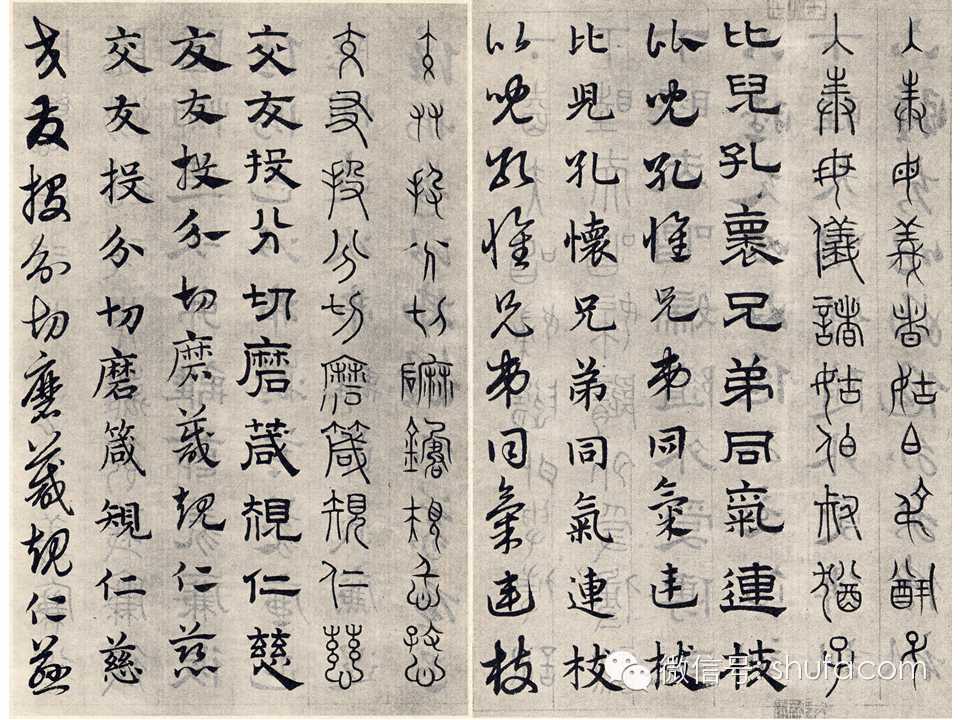 入奉母義者姑白叔猷子
入奉母儀諸姑伯叔猶子
比兒孔褱兄弟同氣連枝
比兒孔懷兄弟同氣連枝
比兒孔懷兄弟同氣連枝
比兒孔懷兄弟同氣連枝
交友投分切磨箴規仁慈
交友投分切磨箴規仁慈
交友投分切磨葴規仁慈
交友投分切磨箴規仁慈
交友投分切磨箴規仁慈
交友投分切磨箴規仁慈
微信号: shufa.com